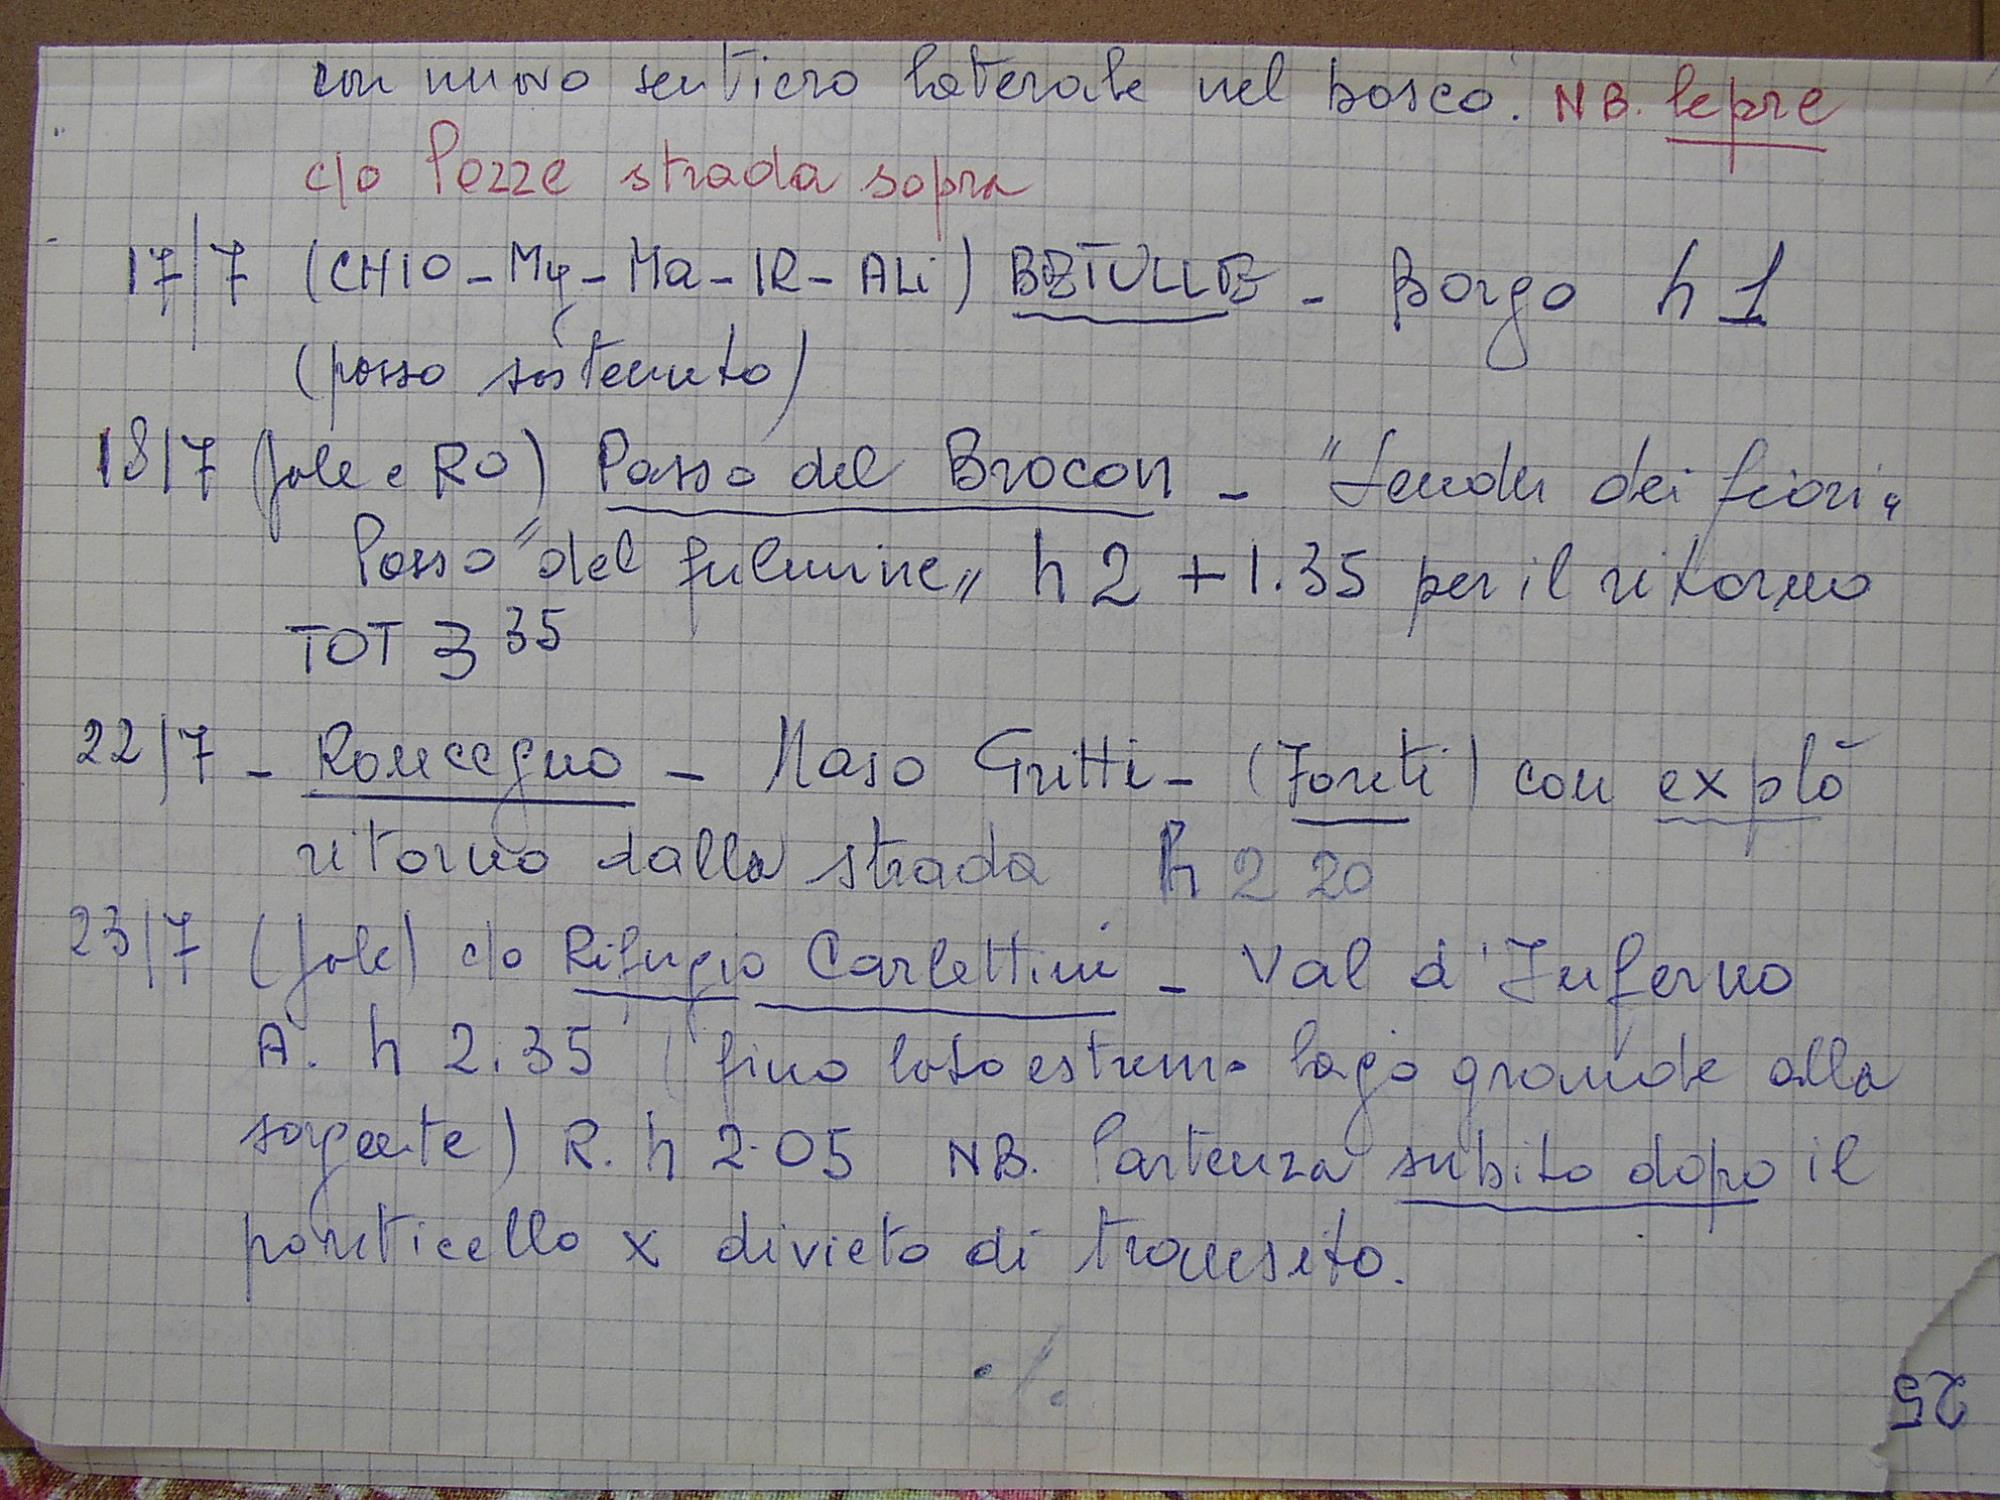 con nuovo sentiero laterale nel bosco. NB. lepre
c/o Pezze strada sopra
17/7 (CHIO - My - Ma - IR - ALi) BETULLE - Borgo h 1
(passo sostenuto)
18/7 (Jole e RO) Passo del Brocon - "Sender dei fiori"
Passo "del fulmine" h 2 + 1.35 per il ritorno
TOT 3 35
22/7 - Roncegno - Maso Gritti - (Fonti) con explò
ritorno dalla strada h 2 20
23/7 (Jole) c/o Rifugio Carlettini - Val d'Inferno
A. h 2.35 (fino lato estremo lago grande alla
sorgente) R. h 2.05 NB. Partenza subito dopo il
ponticello x divieto di transito.
./.
25